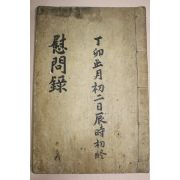 丁卯五月初二日辰時初終
慰問錄